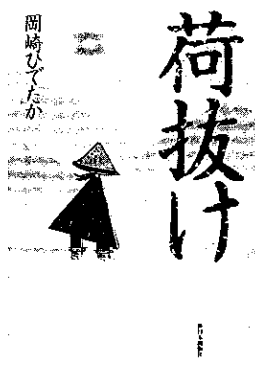 荷抜け
岡崎ひでたか